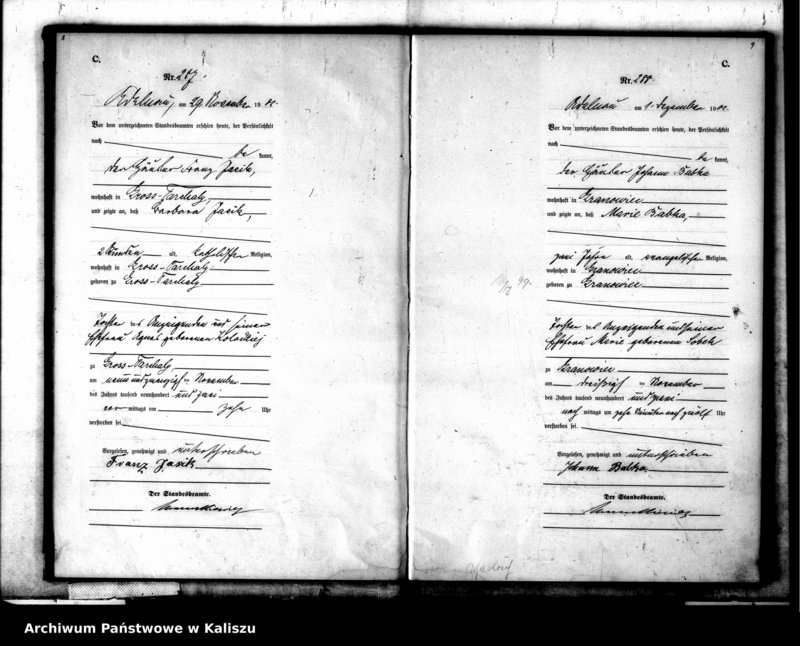 C.
Nr. 287.
Adelnau, am 29. November 19 02.
Vor dem unterzeichneten Standesbeamten erschien heute, der Persönlichkeit
nach
be kannt,
der Häusler Franz Jasik,
wohnhaft in Gross-Tarchaly
und zeigte an, daß Barbara Jasik,
2 Stunden alt, katholischer Religion,
wohnhaft in Gross-Tarchaly
geboren zu Gross-Tarchaly
Tochter des Anzeigenden und seiner
Ehefrau Agnes geborenen
zu Gross-Tarchaly
am neunundzwanzigsten November
des Jahres tausend neunhundert und zwei
vor mittags um zehn Uhr
verstorben sei.
Vorgelesen, genehmigt und unterschrieben
Franz Jasik
Der Standesbeamte.
9
C.
Nr. 288.
Adelnau am 1. Dezember 19 02.
Vor dem unterzeichneten Standesbeamten erschien heute, der Persönlichkeit
nach
be kannt,
der Häusler Johann Babka
wohnhaft in Granowiec
und zeigte an, daß Marie Babka,
zwei Jahre alt, evangelischer Religion,
wohnhaft in Granowiec
geboren zu Granowiec
Tochter des Anzeigenden und seiner
Ehefrau Marie geborenen
zu Granowiec
am dreißigsten November
des Jahres tausend neunhundert und zwei
nach mittags um zehn Minuten nach zwölf Uhr
verstorben sei.
Vorgelesen, genehmigt und unterschrieben
Johann Babka
Der Standesbeamte.
Archiwum Państwowe w Kaliszu